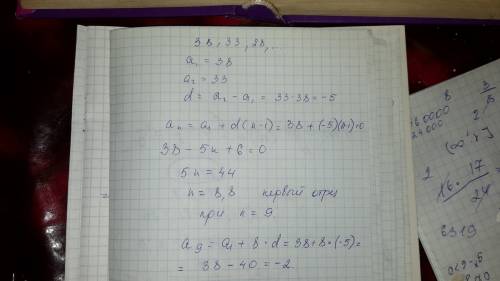 38, 33, 28, ...
a₁ = 38
a₂ = 33
d = a₂ - a₁ = 33-38 = -5
aₙ = a₁ + d(n-1) = 38 + (-5)(n-1) > 0
38 - 5n + 6 = 0
5n = 44
n = 8,8 первый отриц
при n = 9
a₉ = a₁ + 8·d = 38 + 8·(-5) =
= 38 - 40 = -2
8 3
160000 2 5
24000
2 16·17
24
6319